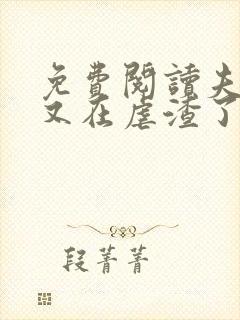 免費閱讀夫
又在虐渣了
段菁菁